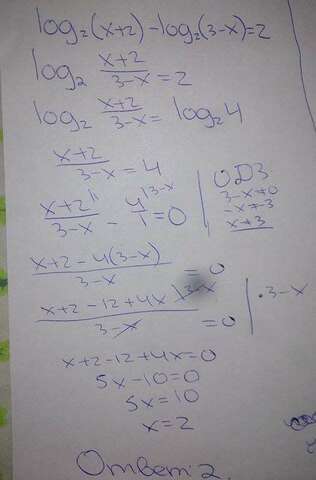 log₂(x+2)-log₂(3-x)=2
log₂ (x+2)/(3-x) = 2
log₂ (x+2)/(3-x) = log₂4
(x+2)/(3-x) = 4
ОДЗ
3-x≠0
-x≠-3
x≠3
(x+2)/(3-x) - 4/1 = 0
(x+2-4(3-x))/(3-x) = 0
(x+2-12+4x)/(3-x) = 0 | ·3-x
x+2-12+4x=0
5x-10=0
5x=10
x=2
Ответ: 2.